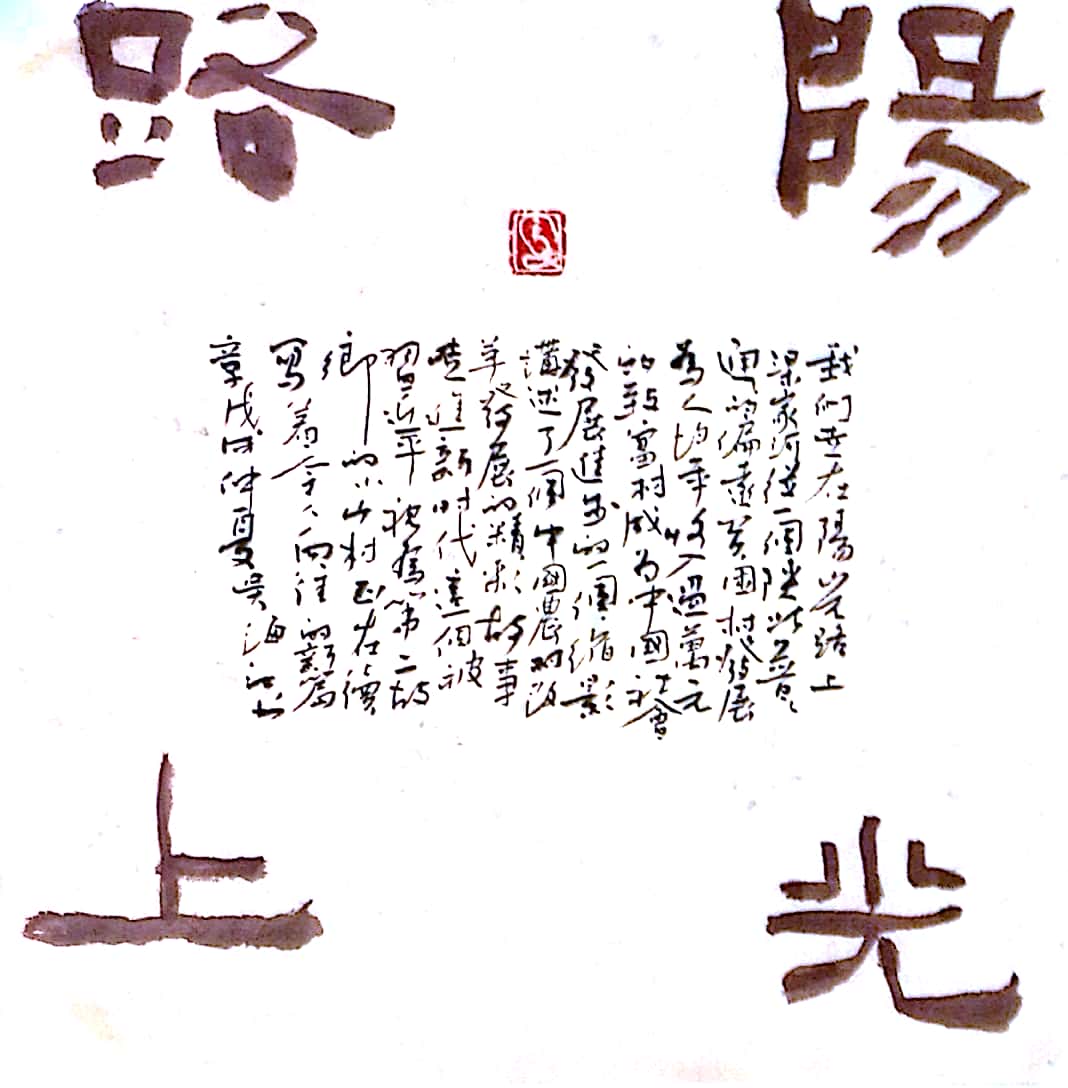 陽光
路上
我們走在陽光路上
梁家河從一個陝北普
通的偏遠貧困村發展
為人均年收入過萬元
的致富村成為中國社會
發展進步的一個縮影
講述了一個中國農村改
革發展的精彩故事
走進新時代這個被
習近平視為第二故
鄉的小山村正在續
寫着令人向往的新篇
章戊戌仲夏吳海